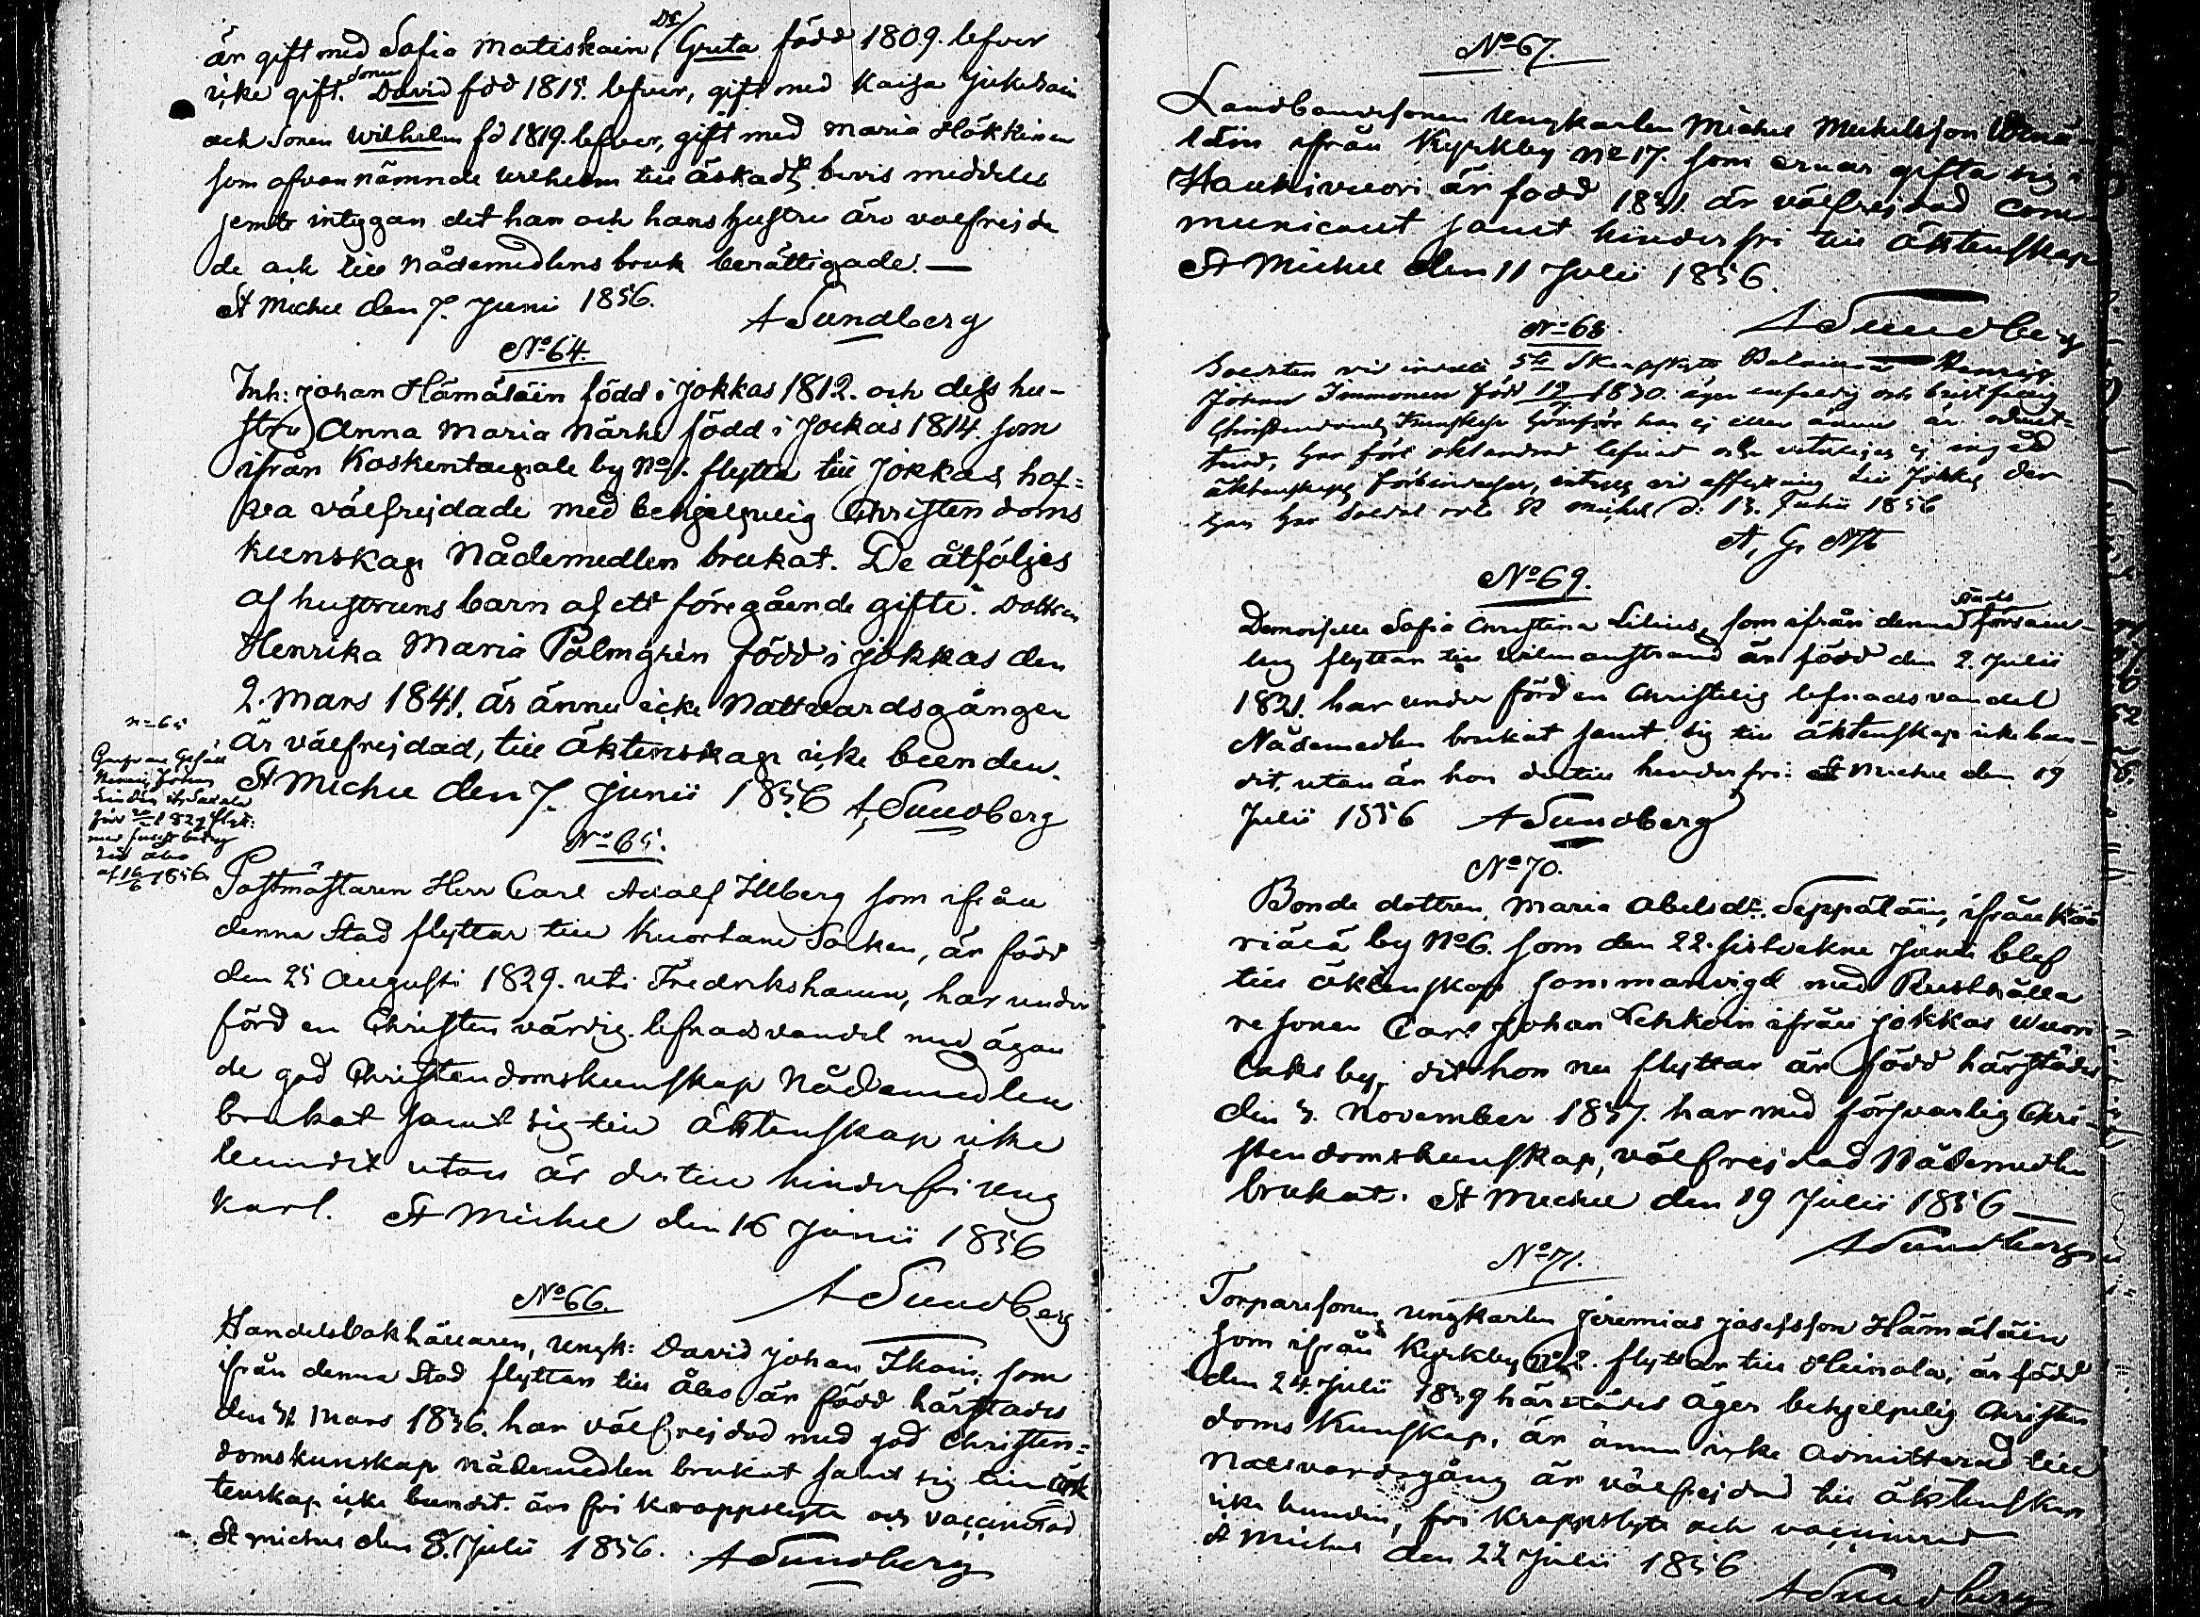 är gift med Sofia Matiskain Dr Greta född 1809. lefver
icke gift. Sonen David född 1815. lefver, gift med Kaisa
och Sonen Wilhelm fd 1819. lefver, gift med Maria Häkkinen
som ofvannämnde Wilhelm till äskadt bevis meddelas
jemte intygan det han och hans hustru äro välfrejda
de och till Nådemedlens bruk berättigade. —
St Michel den 7. Junii 1856. A Sundberg
No 64.
Inh: Johan Hämäläin född i Jokkas 1812. och dess hu-
stru Anna Maria Närhi född i Jockas 1814. som
ifrån Koskentaipale by No 1. flytta till Jokkas, haf-
va välfrejdade med behjelpelig Christendoms
kunskap Nådemedlen brukat. De åtföljes
af hustruns barn af ett föregående gifte. Dottren
Henrika Maria Palmgrén född i Jokkas den
2. Mars 1841. är ännu icke Nattvardsgången
är välfrejdad, till äktenskap icke bunden.
St Michel den 7. Junii 1856 A Sundberg
n=65
1829
till Åbo
af 16/6 1856
No 65.
Postmästaren Herr Carl Adolf Illberg som ifrån
denna Stad flyttar till Kuortane Socken, är född
den 25 Augusti 1829. uti Fredrikshamn, har under
förd en Christen värdig lefnadsvandel med ägan
de god Christendomskunskap Nådemedlen
brukat samt sig till äktenskap icke
bundit utan är dertill hinderfri ung
karl. St Michel den 16 Junii 1856
A Sundberg
No 66.
Handelsbokhållaren, ungk: David Johan Ikoin, som
ifrån denna Stad flyttar till Åbo är född härstädes
den Mars 1836. har välfrejdad med god Christen-
domskunskap nådemedlen brukat samt sig till äk
tenskap icke bundit. är fri kroppslyte och vaccinerad
St Michel den 8. Julii 1856. A Sundberg
No 67.
Landbondesonen Ungkarlen Michel Michelsson
läin ifrån Kyrkby No 17. som ernar gifta sig i
Haukivuori är född 1831. är välfrejdad com
municant samt hinderfri till äktenskap
St Michel den 11 Julii 1856.
A Sundberg
No 68
Soldaten vid 5te Skarpskytte Bataillon
Johan Immonen född 1830. äger enfaldig och bristfällig
Christendoms Kunskap han ej eller ännu är admit-
terad, har fört oklandrad lefnad och ej
äktenskaps förbindelser, till Jokkas der
han har St Michel d: 13. Julii 1856
No 69.
Demoiselle Sofia Christina Lilius, som ifrån denna Stads försam-
ling flyttar till Wilmanstrand är född den 2. Julii
1821. har under förd en Christelig lefnadsvandel
Nådemedlen brukat samt sig till äktenskap icke bun-
dit, utan är hon dertill hinderfri: St Michel den 19
Julii 1856 A Sundberg
No 70.
Bonde dottren, Maria Abelsdr. Seppäläin, ifrån
by No 6. som den 22. sistvekne Junii blef
till äktenskap sammanvigd med Rusthålla
re sonen Carl Johan Lehkoin ifrån Jokkas Wuori
laks by, dit hon nu flyttar är född härstädes
den 3. November 1837. har med försvarlig Chri-
stendomskunskap, välfrejdad Nådemedlen
brukat. St Michel den 19 Julii 1856 —
A Sundberg
No 71.
Torparesonen, ungkarlen Jeremias Josefsson Hämäläin
som ifrån Kyrkby No 2. flyttar till Heinola, är född
den 24. Julii 1839 härstädes äger behjelpelig Christen
doms Kunskap, är ännu icke admitterad till
Nattvardsgång är välfrejdad till äktenskap
icke bunden, fri kroppslyte och vaccinerad
St Michel den 22 Julii 1856
A Sundberg